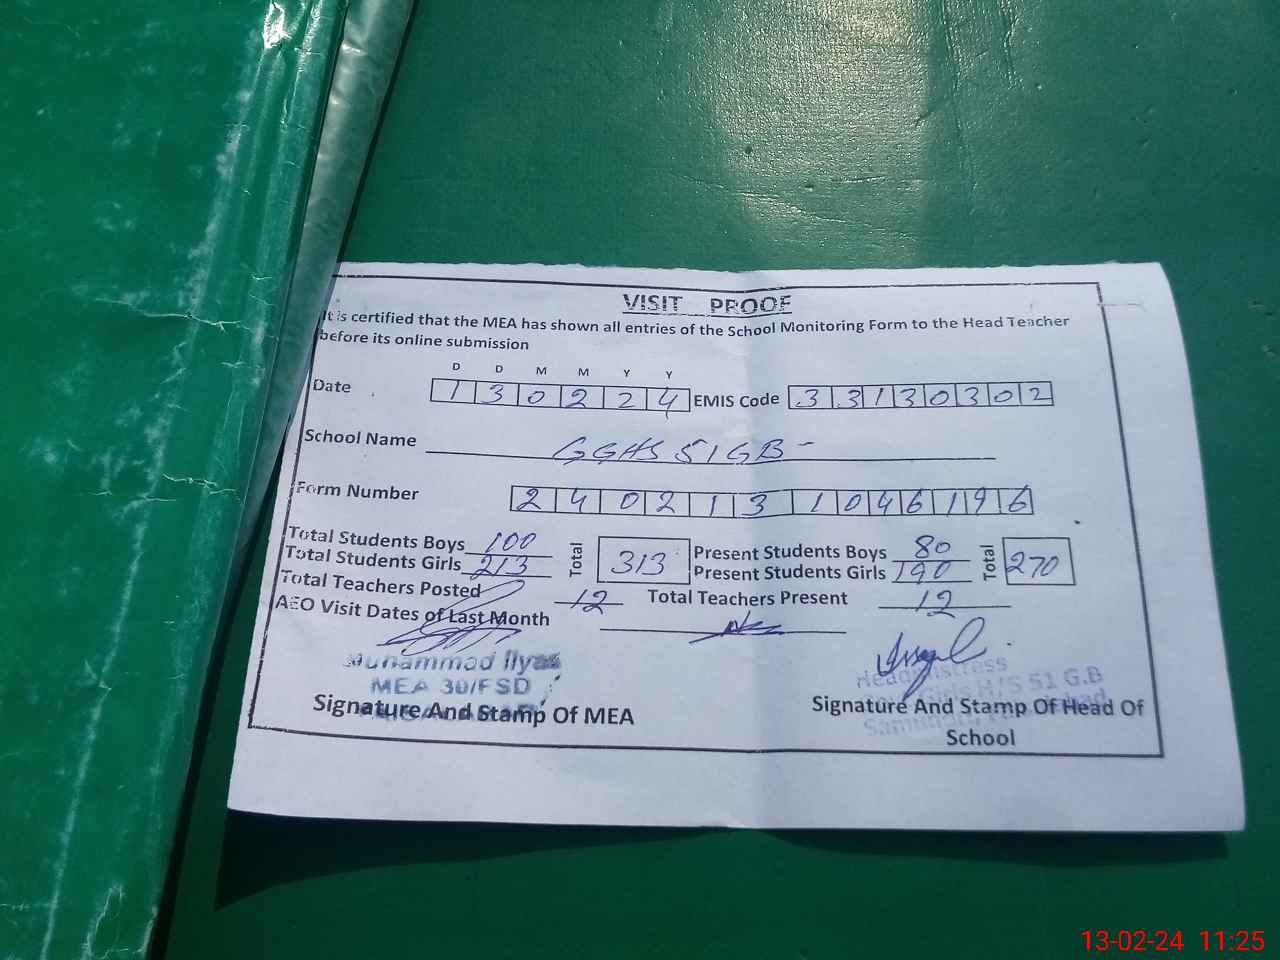 VISIT PROOF
It is certified that the MEA has shown all entries of the School Monitoring Form to the Head Teacher
before its online submission
D D M M Y Y
Date 1 3 0 2 2 4 EMIS Code 3 3 1 3 0 3 0 2
School Name GGHS 51 GB -
Form Number 2 4 0 2 1 3 1 0 4 6 1 9 6
Total Students Boys 100 Total 313 Present Students Boys 80 Total 270
Total Students Girls 213 Present Students Girls 190
Total Teachers Posted 12 Total Teachers Present 12
AEO Visit Dates of Last Month
Muhammad Ilyas
MEA 30/FSD
Signature And Stamp Of MEA
Headmistress
Girls H/S 51 G.B
Signature And Stamp Of Head Of
School
13-02-24 11:25